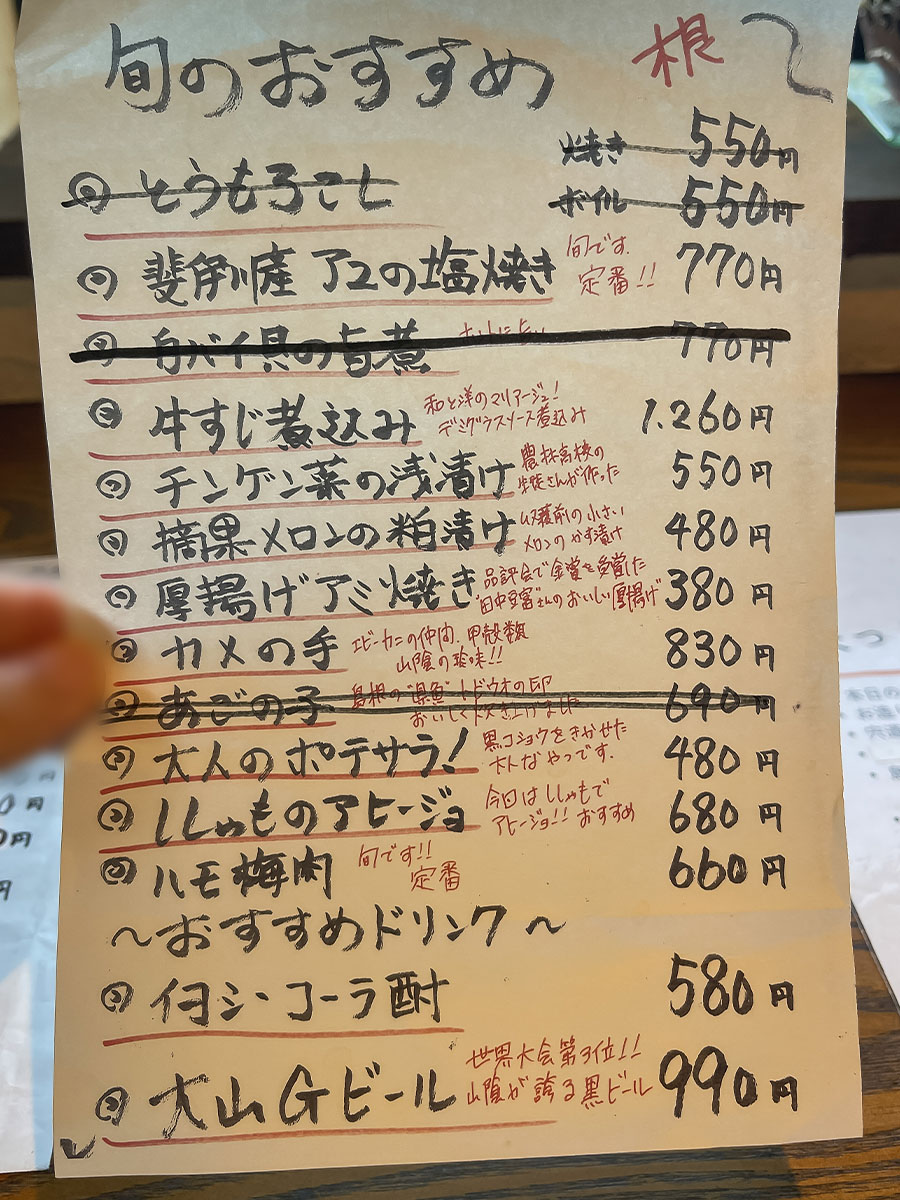 旬のおすすめ 根
とうもろこし 焼き 550円
ボイル 550円
斐伊川産 アユの塩焼き 旬です。 定番!! 770円
白バイ貝の旨煮 770円
牛すじ煮込み 和と洋のマリアージュ! デミグラスソース煮込み 1.260円
チンゲン菜の浅漬け 農林高校の 生徒さんが作った 550円
摘果メロンの粕漬け 収穫前の小さい メロンのかす漬け 480円
厚揚げアミ焼き 品評会で金賞を受賞した "田中豆富"さんのおいしい厚揚げ 380円
カメの手 エビ・カニの仲間、甲殻類 山陰の珍味!! 830円
あごの子 島根の"県魚"トビウオの卵 おいしく炊き上げました 690円
大人のポテサラ! 黒コショウをきかせた 大人なやつです。 480円
ししゃものアヒージョ 今回はししゃもで アヒージョ!! おすすめ 680円
ハモ梅肉 旬です!! 定番 660円
~おすすめドリンク~
イヨシ・コーラ酎 580円
大山Gビール 世界大会第3位!! 山陰が誇る黒ビール 990円
本日の
円
0円
0円
円